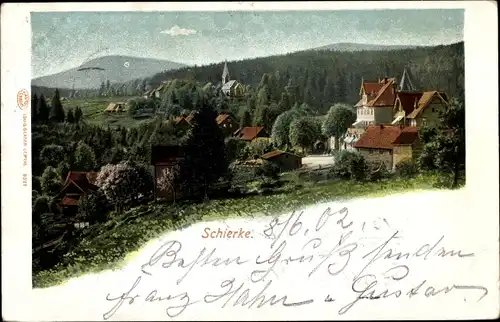 Schierke.
8/6 02.
Besten Gruß senden
Franz Hahn u Gustav.